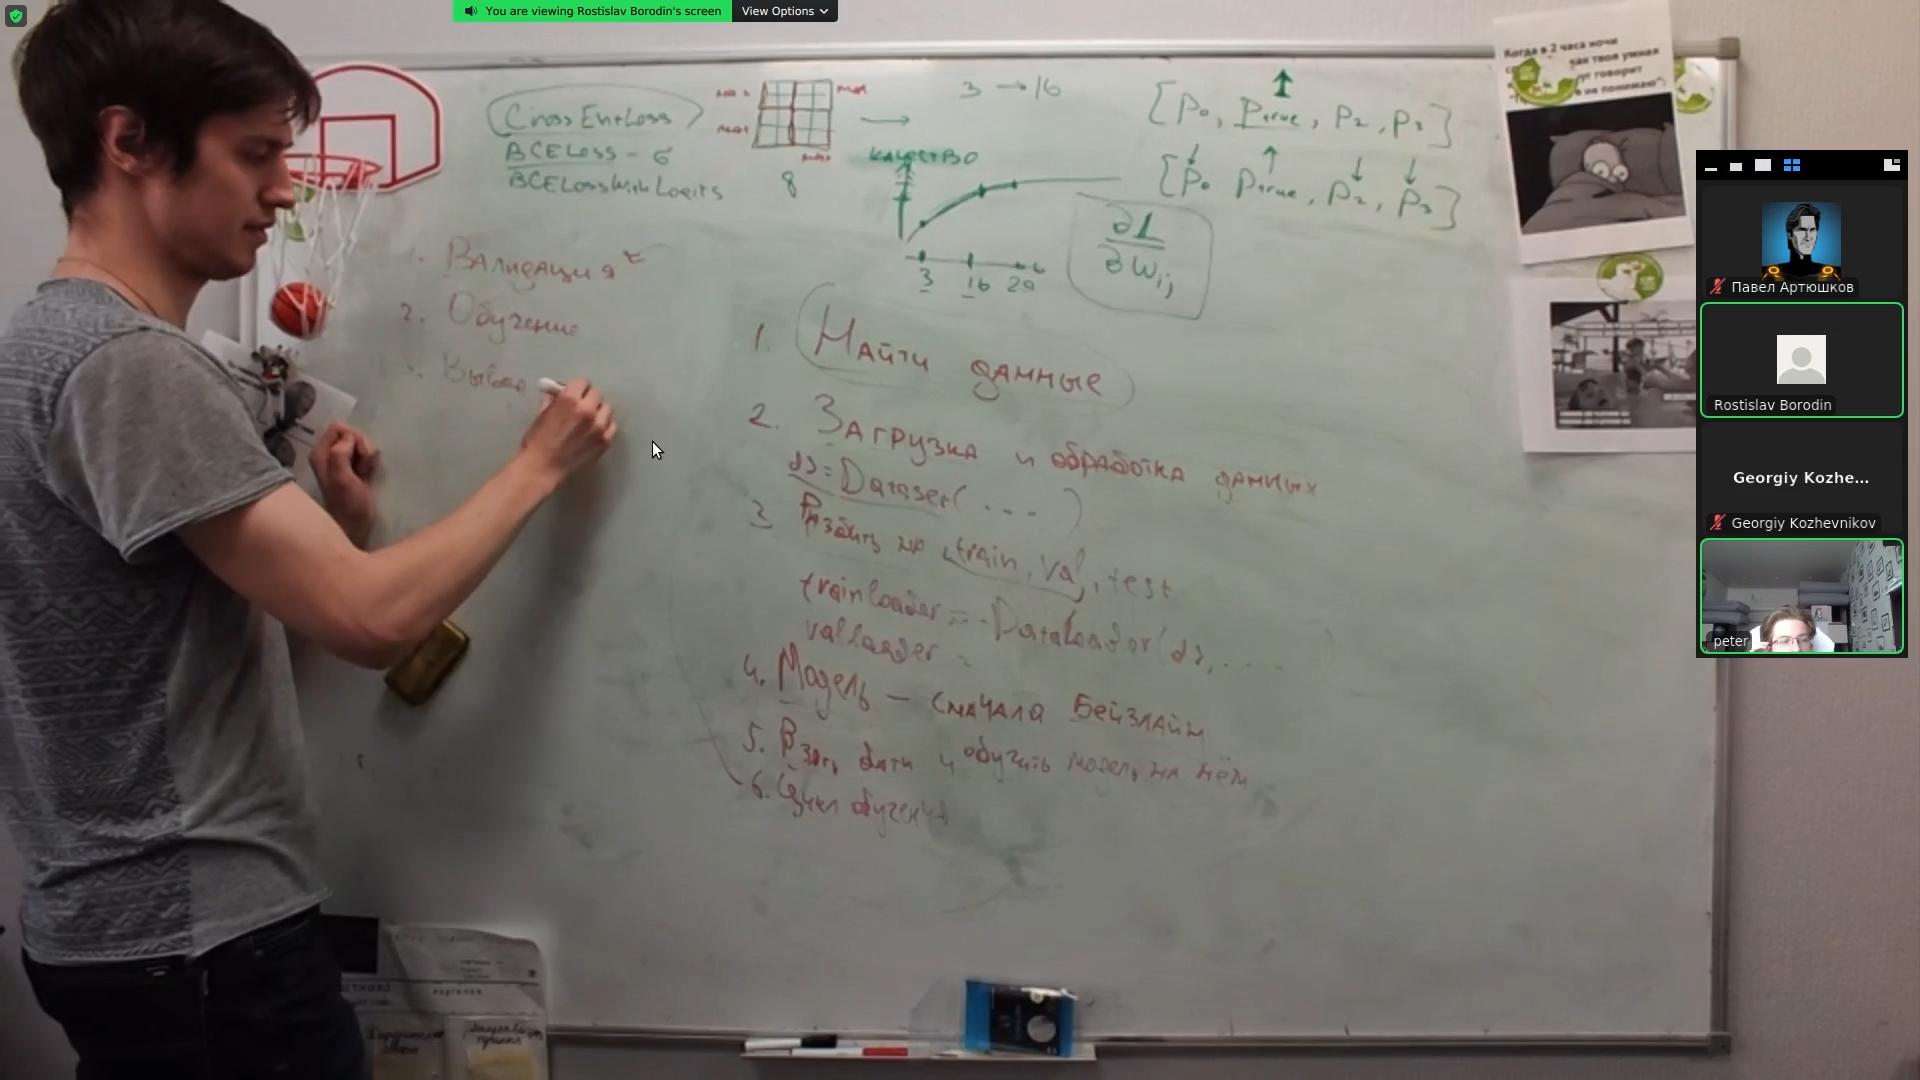 You are viewing Rostislav Borodin's screen
View Options
CrossEntLoss
BCELoss - σ
BCELossWithLogits
8
3 → 16
качество
3 16 20
∂L
∂Wij
[P0, Ptrue, P2, P3]
[P0 Ptrue, P2, P3]
1. Валидация
2. Обучение
3. Вывод
1. Найти данные
2. Загрузка и обработка данных
ds = Dataset(...)
3 Разбить на train, val, test
trainloader = DataLoader(ds, ...
valloader =
4. Модель – сначала Бейзлайн
5. Взять батч и обучить модель на нём
6. Цикл обучения
Когда в 2 часа ночи
как твоя умная
говорит
не понимаю"
Павел Артюшков
Rostislav Borodin
Georgiy Kozhe...
Georgiy Kozhevnikov
peter